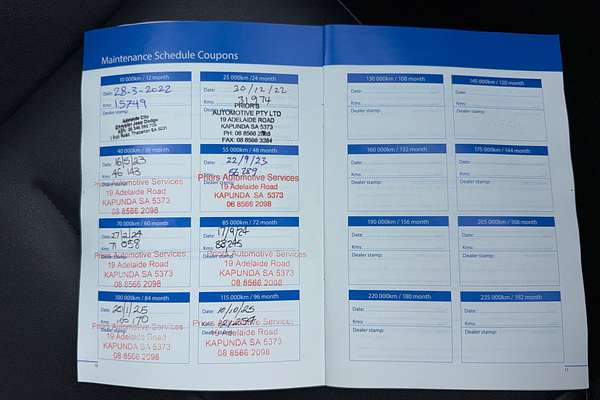 Maintenance Schedule Coupons
10 000km / 12 month
Date: 28-3-2022
Kms: 15749
Dealer stamp:
Adelaide City
Chrysler Jeep Dodge
25 000km / 24 month
Date: 20/12/22
Kms: 31974
PRIOR'S
AUTOMOTIVE PTY LTD
19 ADELAIDE ROAD
KAPUNDA SA 5373
PH: 08 8566
FAX: 08 8566 3284
40 000km / 36 month
Date: 16/5/23
Kms: 46 143
Dealer stamp:
Priors Automotive Services
19 Adelaide Road
KAPUNDA SA 5373
08 8566 2098
55 000km / 48 month
Date: 22/9/23
Kms:
Dealer stamp:
Priors Automotive Services
19 Adelaide Road
KAPUNDA SA 5373
08 8566 2098
70 000km / 60 month
Date: 27/2/24
Kms: 71 058
Dealer stamp:
Priors Automotive Services
19 Adelaide Road
KAPUNDA SA 5373
08 8566 2098
85 000km / 72 month
Date: 17/9/24
Kms: 88245
Dealer stamp:
Priors Automotive Services
19 Adelaide Road
KAPUNDA SA 5373
08 8566 2098
100 000km / 84 month
Date: 20/1/25
Kms:
Dealer stamp:
Priors Automotive Services
19 Adelaide Road
KAPUNDA SA 5373
08 8566 2098
115 000km / 96 month
Date: 10/10/25
Kms:
Priors Automotive Services
19 Adelaide Road
KAPUNDA SA 5373
08 8566 2098
130 000km / 108 month
Date:
Kms:
Dealer stamp:
145 000km / 120 month
Date:
Kms:
Dealer stamp:
160 000km / 132 month
Date:
Kms:
Dealer stamp:
175 000km / 144 month
Date:
Kms:
Dealer stamp:
190 000km / 156 month
Date:
Kms:
Dealer stamp:
205 000km / 168 month
Date:
Kms:
Dealer stamp:
220 000km / 180 month
Date:
Kms:
Dealer stamp:
235 000km / 192 month
Date:
Kms:
Dealer stamp: